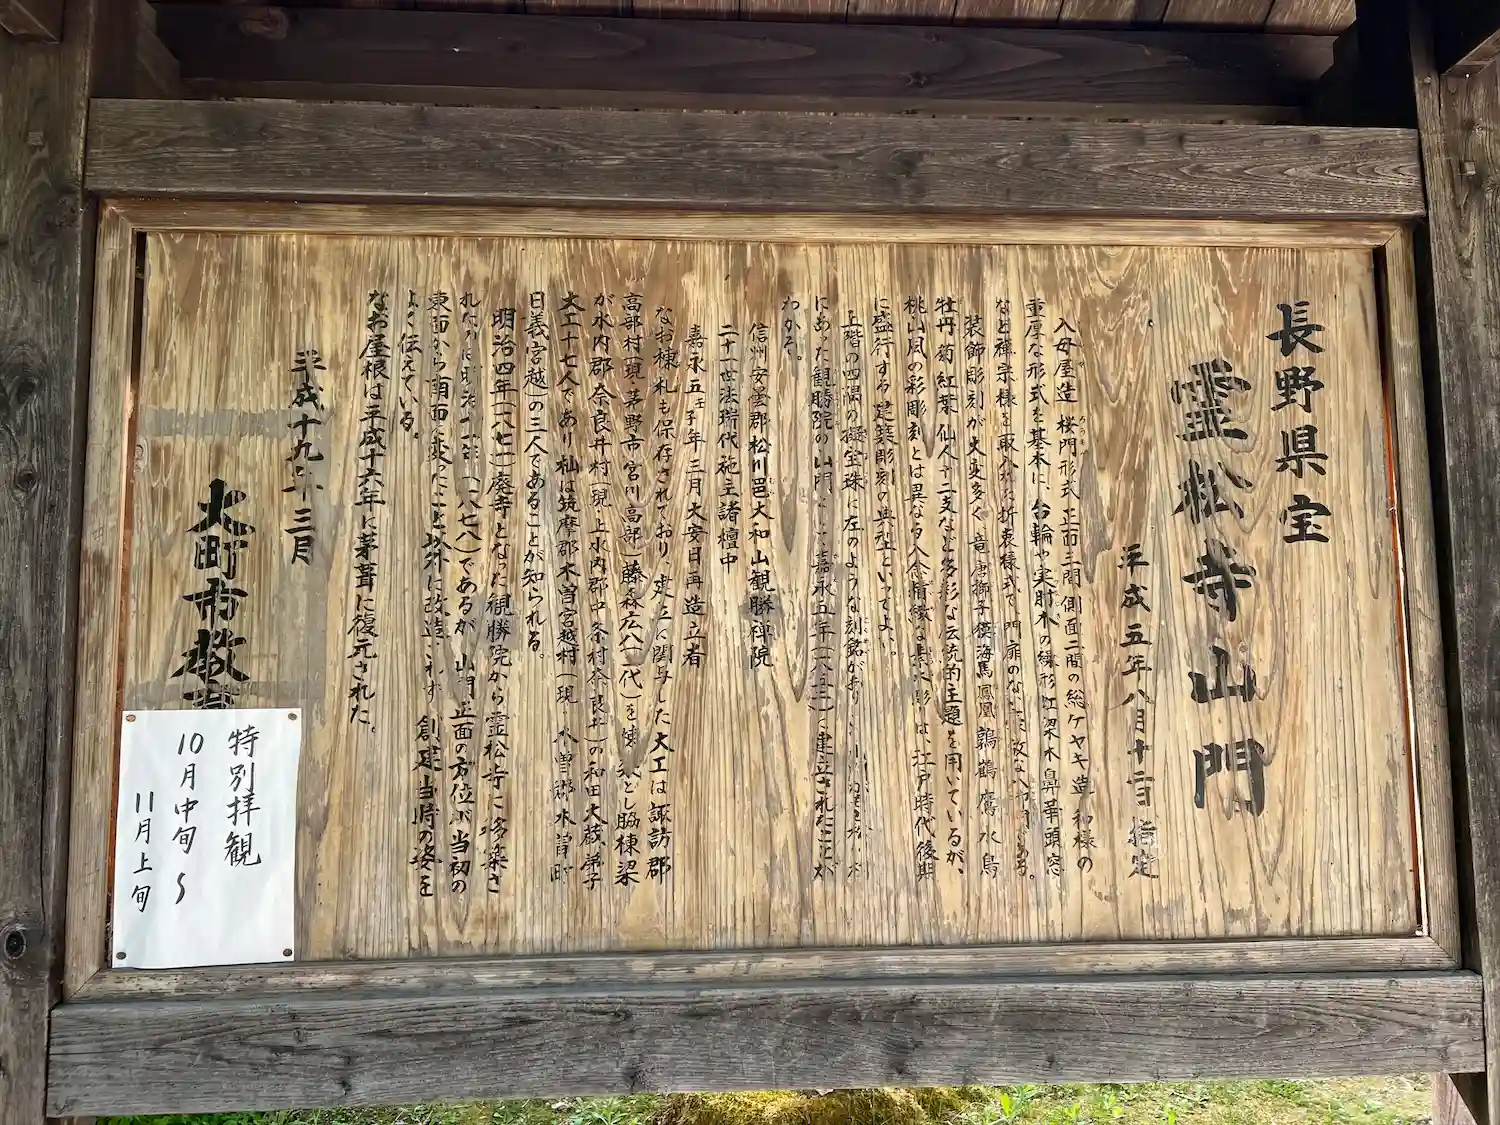 長野県宝
霊松寺山門
平成五年八月十二日 指定
入母屋造 桜門形式 正面三間 側面二間の総ケヤキ造 和様の
重厚な形式を基本に、台輪や実肘木の繰形 虹梁 木鼻 華頭窓
など禅宗様を取入れた折衷様式で 門扉のない
装飾彫刻が大変多く 竜 唐獅子 獏 海馬 鳳凰 鶉 鶴 鷹 水鳥
牡丹 菊 紅葉 仙人 十二支など多彩な伝統的主題を用いているが、
桃山風の彩彫刻とは異なり 江戸時代後期
に盛行する建築彫刻の典型といってよい。
上階の四隅の擬宝珠に左のような刻銘があり
にあった観勝院の山門として嘉永五年(一八五二)に建立されたことが
わかる。
信州安曇郡松川邑大和山観勝禅院
二十一世法瑞代 施主諸檀中
嘉永五壬子年三月大安日再造立者
なお棟札も保存されており、建立に関与した大工は諏訪郡
高部村(現・茅野市宮川高部)藤森広八(二代)を棟梁とし脇棟梁
が水内郡奈良井村(現・上水内郡中条村奈良井)の和田大蔵 弟子
大工十七人であり 杣は筑摩郡木曽宮越村(現・木曽郡木曽町
日義宮越)の三人であることが知られる。
明治四年(一八七一)廃寺となった観勝院から霊松寺に移築さ
れたのは明治十一年(一八七八)であるが 山門正面の方位が当初の
東面から南面に変ったこと以外に改造されず 創建当時の姿を
よく伝えている。
なお屋根は平成十六年に茅葺に復元された。
平成十九年三月
大町市教
特別拝観
10月中旬〜
11月上旬